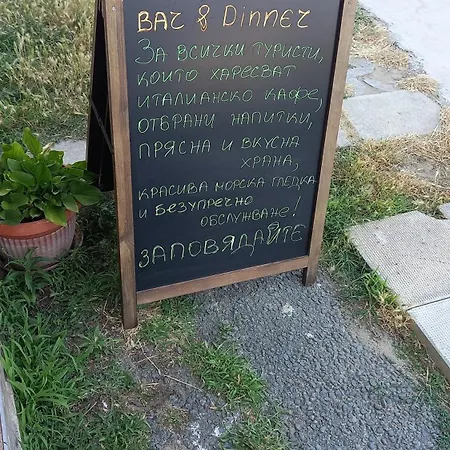 Bar & Dinner
За всички туристи,
които харесват
италианско кафе,
отбрани напитки,
прясна и вкусна
храна,
красива морска гледка
и безупречно
обслужване!
Заповядайте